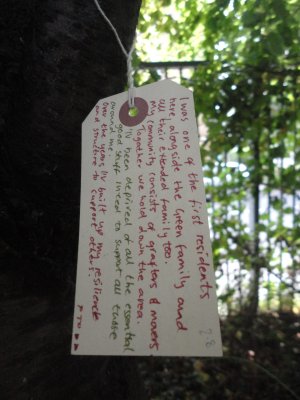 I was one of the first residents
here, alongside the Green family and
all their extended family too.
My community consists of grafters & movers
Togather we hold down the area
I'v been deprived of all the essential
good stuff I need to support all those
around me
Over the years I'v built up my resilience
and structure to support others.
PTO
28